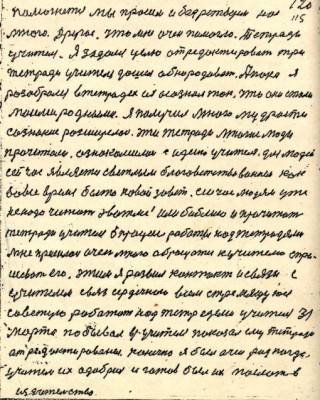 120
115
помогнети мы просим и бодрствуем на
много. Другое, что мне очен помогло. Тетради
учителя. Я задался целю отредоктироват три
тетради учителя дошли обнородоват. Я пока я
розобрался в тетрадях ся осознал ток. что они стали
моими родными. Я получил много мудрости
сознание розширелось. эти тетради многие люди
прочетали. ознокомилис с идией учителя. для людей
сейчас является светлым благовествованием как
вовсе время было новой завет. сейчас людям уже
некода четат Евангелие или библию а прочитат
тетради учителя в процес работы над тетрадями
мне пришлос очен много обращатся к учителю спра-
шеват его, этим я розвил контакт и связи с
с учителем связ сердечного всем стремящимся
советую работат над тетрадями учителя 31
марта побывал у учителя показал ему тетради
отредоктированы. конечно я был очен рад когда
учител их одобрил и готов был их послат в
издателство.